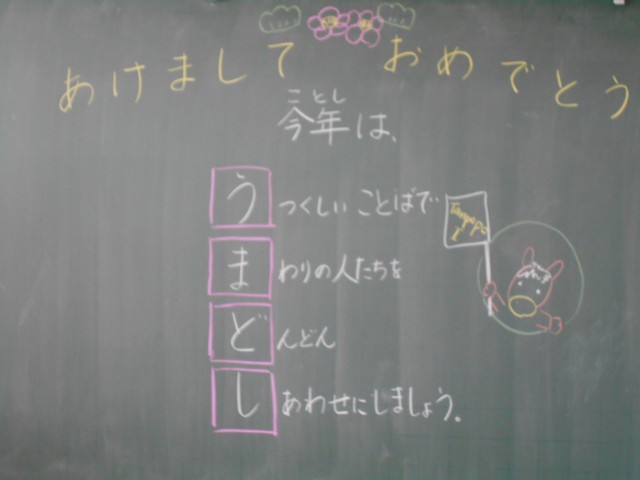 あけまして おめでとう
ことし
今年は、
うつくしいことばで
まわりの人たちを
どんどん
しあわせにしましょう。